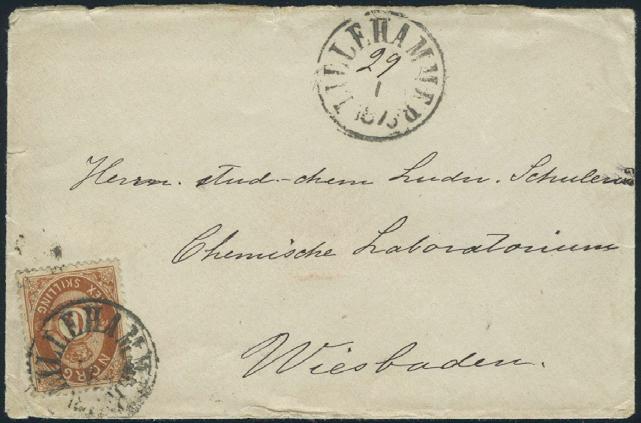 LILLEHAMMER
29
1
1875
Herrn. stud-chem Ludw. Schulern
Chemische Laboratorium
Wiesbaden.
NORGE
SEX SKILLING
6
LILLEHAMMER